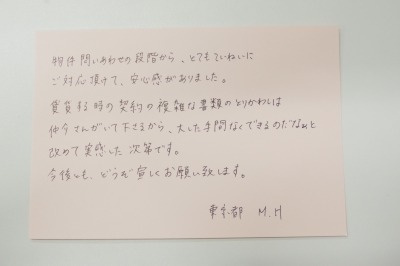 物件問いあわせの段階から、とてもていねいに
ご対応頂けて、安心感がありました。
賃貸する時の契約の複雑な書類のとりかわしは
仲介さんがいて下さるから、大した手間なくできるのだなぁと
改めて実感した次第です。
今後とも、どうぞ宜しくお願い致します。
東京都 M.H